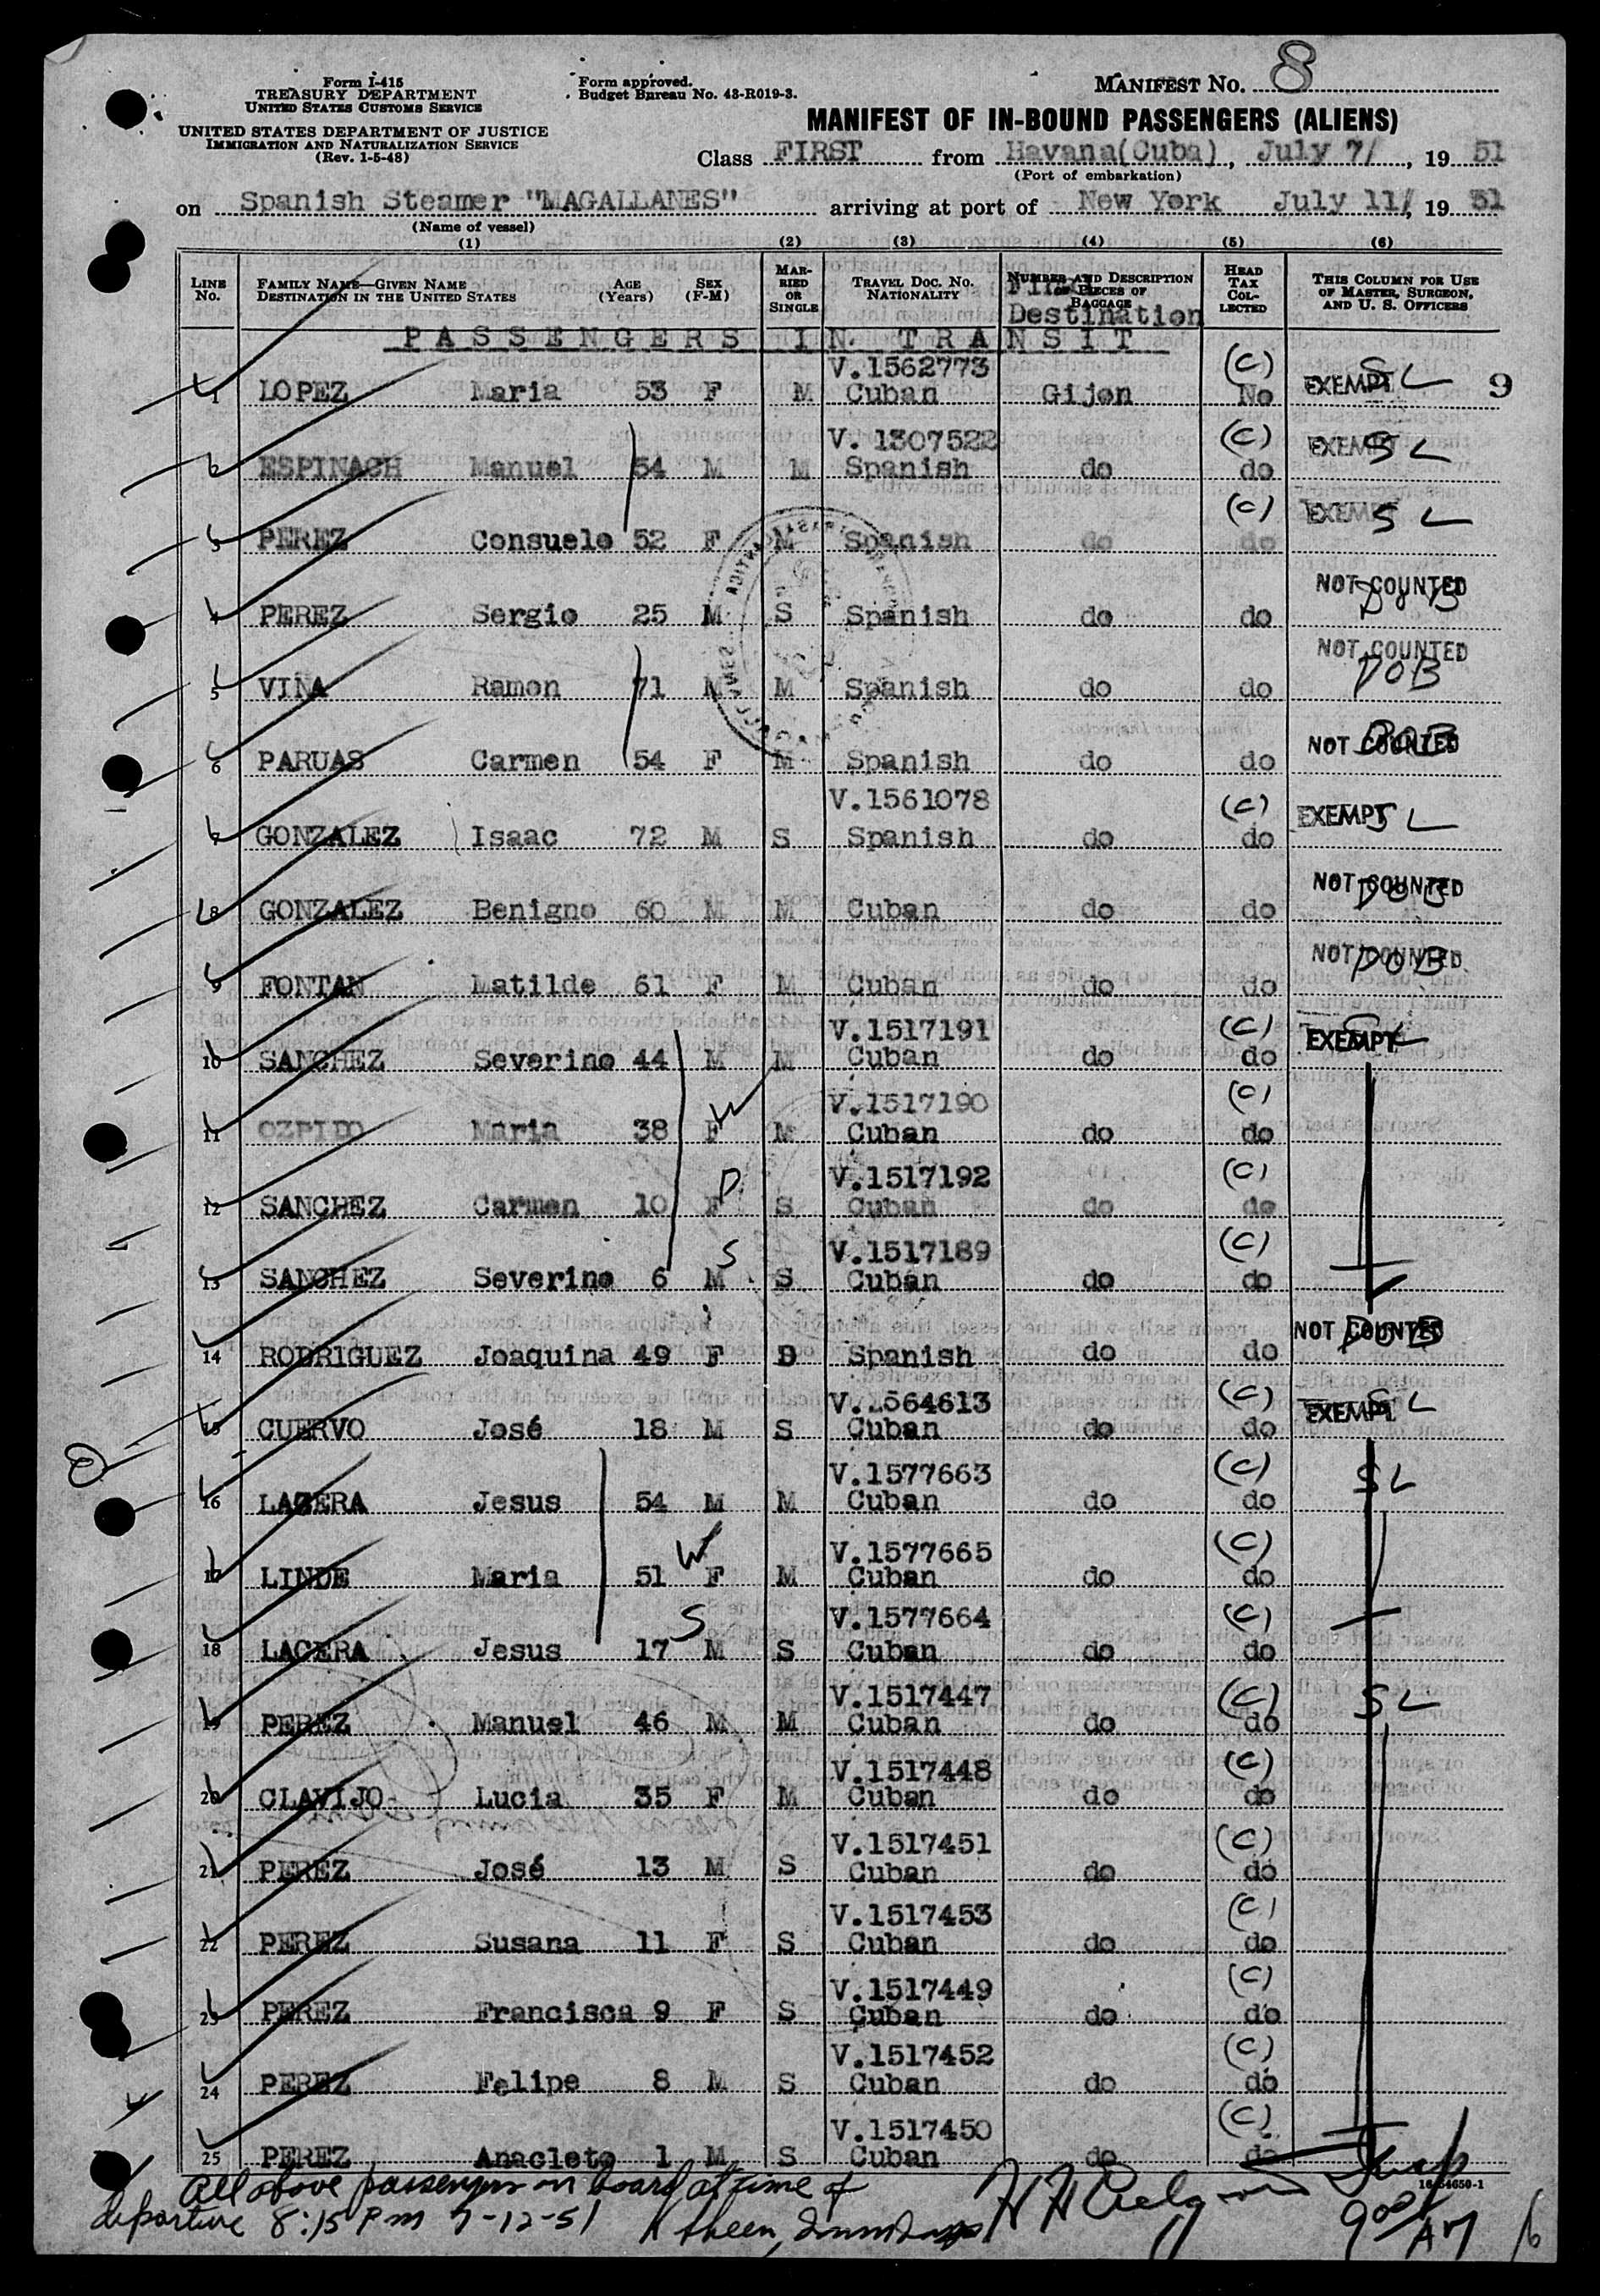 Form I-415
TREASURY DEPARTMENT
UNITED STATES CUSTOMS SERVICE
UNITED STATES DEPARTMENT OF JUSTICE
IMMIGRATION AND NATURALIZATION SERVICE
(Rev. 1-5-48)
Form approved.
Budget Bureau No. 43-R019-3.
MANIFEST NO. 8
MANIFEST OF IN-BOUND PASSENGERS (ALIENS)
Class FIRST from Havana(Cuba), July 7/, 19 51
(Port of embarkation)
on Spanish Steamer "MAGALLANES" arriving at port of New York July 11/, 19 51
(Name of vessel)
(1) (2) (3) (4) (5) (6)
LINE No. FAMILY NAME—GIVEN NAME DESTINATION IN THE UNITED STATES AGE (Years) SEX (F-M) MARRIED OR SINGLE TRAVEL DOC. NO. NATIONALITY NUMBER AND DESCRIPTION OF PIECES OF BAGGAGE Final Destination HEAD TAX COLLECTED THIS COLUMN FOR USE OF MASTER, SURGEON, AND U. S. OFFICERS
PASSENGERS IN TRANSIT
V.1562773 (C)
1 LOPEZ Maria 53 F M Cuban Gijon No EXEMPT SL 9
V. 1307522 (C)
2 ESPINACH Manuel 54 M M Spanish do do EXEMPT SL
(C)
3 PEREZ Consuelo 52 F M Spanish do do EXEMPT SL
4 PEREZ Sergio 25 M S Spanish do do NOT COUNTED DOB
5 VIÑA Ramon 71 M M Spanish do do NOT COUNTED DOB
6 PARUAS Carmen 54 F M Spanish do do NOT COUNTED DOB
V.1561078 (C)
7 GONZALEZ Isaac 72 M S Spanish do do EXEMPT SL
8 GONZALEZ Benigno 60 M M Cuban do do NOT COUNTED DOB
9 FONTAN Matilde 61 F M Cuban do do NOT COUNTED DOB
V.1517191 (C)
10 SANCHEZ Severino 44 M M Cuban do do EXEMPT SL
V.1517190 (C)
11 OZPIDO Maria 38 F W M Cuban do do
V.1517192 (C)
12 SANCHEZ Carmen 10 F D S Cuban do do
V.1517189 (C)
13 SANCHEZ Severino 6 M S S Cuban do do
14 RODRIGUEZ Joaquina 49 F D Spanish do do NOT COUNTED DOB
V.1564613 (C)
15 CUERVO José 18 M S Cuban do do EXEMPT SL
V.1577663 (C)
16 LACERA Jesus 54 M M Cuban do do SL
V.1577665 (C)
17 LINDE Maria 51 W F M Cuban do do
V.1577664 (C)
18 LACERA Jesus 17 S M S Cuban do do
V.1517447 (C)
19 PEREZ Manuel 46 M M Cuban do do SL
V.1517448 (C)
20 CLAVIJO Lucia 35 F M Cuban do do
V.1517451 (C)
21 PEREZ José 13 M S Cuban do do
V.1517453 (C)
22 PEREZ Susana 11 F S Cuban do do
V.1517449 (C)
23 PEREZ Francisca 9 F S Cuban do do
V.1517452 (C)
24 PEREZ Felipe 8 M S Cuban do do
V.1517450 (C)
25 PEREZ Anacleto 1 M S Cuban do do
16-54650-1
All above passengers on board at time of
departure 8:15 PM 7-12-51
900 AM